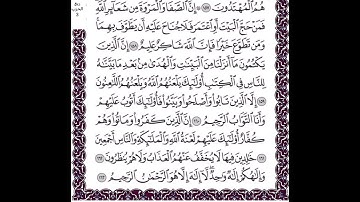 هُمُ ٱلْمُهْتَدُونَ ١٥٧ ۞ إِنَّ ٱلصَّفَا وَٱلْمَرْوَةَ مِن شَعَآئِرِ ٱللَّهِ
فَمَنْ حَجَّ ٱلْبَيْتَ أَوِ ٱعْتَمَرَ فَلَا جُنَاحَ عَلَيْهِ أَن يَطَّوَّفَ بِهِمَا
وَمَن تَطَوَّعَ خَيْرًا فَإِنَّ ٱللَّهَ شَاكِرٌ عَلِيمٌ ١٥٨ إِنَّ ٱلَّذِينَ
يَكْتُمُونَ مَآ أَنزَلْنَا مِنَ ٱلْبَيِّنَٰتِ وَٱلْهُدَىٰ مِنۢ بَعْدِ مَا بَيَّنَّٰهُ
لِلنَّاسِ فِى ٱلْكِتَٰبِ أُو۟لَٰٓئِكَ يَلْعَنُهُمُ ٱللَّهُ وَيَلْعَنُهُمُ ٱللَّٰعِنُونَ
١٥٩ إِلَّا ٱلَّذِينَ تَابُوا۟ وَأَصْلَحُوا۟ وَبَيَّنُوا۟ فَأُو۟لَٰٓئِكَ أَتُوبُ عَلَيْهِمْ
وَأَنَا ٱلتَّوَّابُ ٱلرَّحِيمُ ١٦٠ إِنَّ ٱلَّذِينَ كَفَرُوا۟ وَمَاتُوا۟ وَهُمْ
كُفَّارٌ أُو۟لَٰٓئِكَ عَلَيْهِمْ لَعْنَةُ ٱللَّهِ وَٱلْمَلَٰٓئِكَةِ وَٱلنَّاسِ أَجْمَعِينَ
١٦١ خَٰلِدِينَ فِيهَا لَا يُخَفَّفُ عَنْهُمُ ٱلْعَذَابُ وَلَا هُمْ يُنظَرُونَ ١٦٢
وَإِلَٰهُكُمْ إِلَٰهٌ وَٰحِدٌ لَّآ إِلَٰهَ إِلَّا هُوَ ٱلرَّحْمَٰنُ ٱلرَّحِيمُ ١٦٣